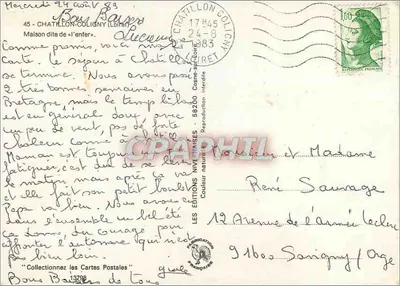 Mercredi 24 août 83
Bons Baisers
Lucienne
45 - CHATILLON-COLIGNY (Loiret)
Maison dite de «l'enfer».
Comme promis, voici une
carte. Le séjour à Chatillon
se termine. Nous avons passé
2 très bonnes semaines en
Bretagne, mais le temps là-bas
est en général doux, avec
un peu de vent, pas de forte
chaleur comme à Chatillon.
Maman est toujours
fatiguée, c'est dur de se lever
le matin, mais après ça va
et elle fait son petit boulot
Papa va bien. Nous avons eu
dans l'ensemble un bel été
ça donne du courage pour
affronter l'automne qui n'est
pas bien loin.
Gisèle
"Collectionnez les Cartes Postales"
Bons Baisers de tous
LES ÉDITIONS NIVERNAISES - 58200 Cosne
Couleur naturelle
Reproduction interdite
CHATILLON-COLIGNY
17H45
24-8
1983
LOIRET
1,60
Monsieur et Madame
René Sauvage
12 Avenue de l'armée Leclerc
91600 Savigny/Orge
CPARAMA